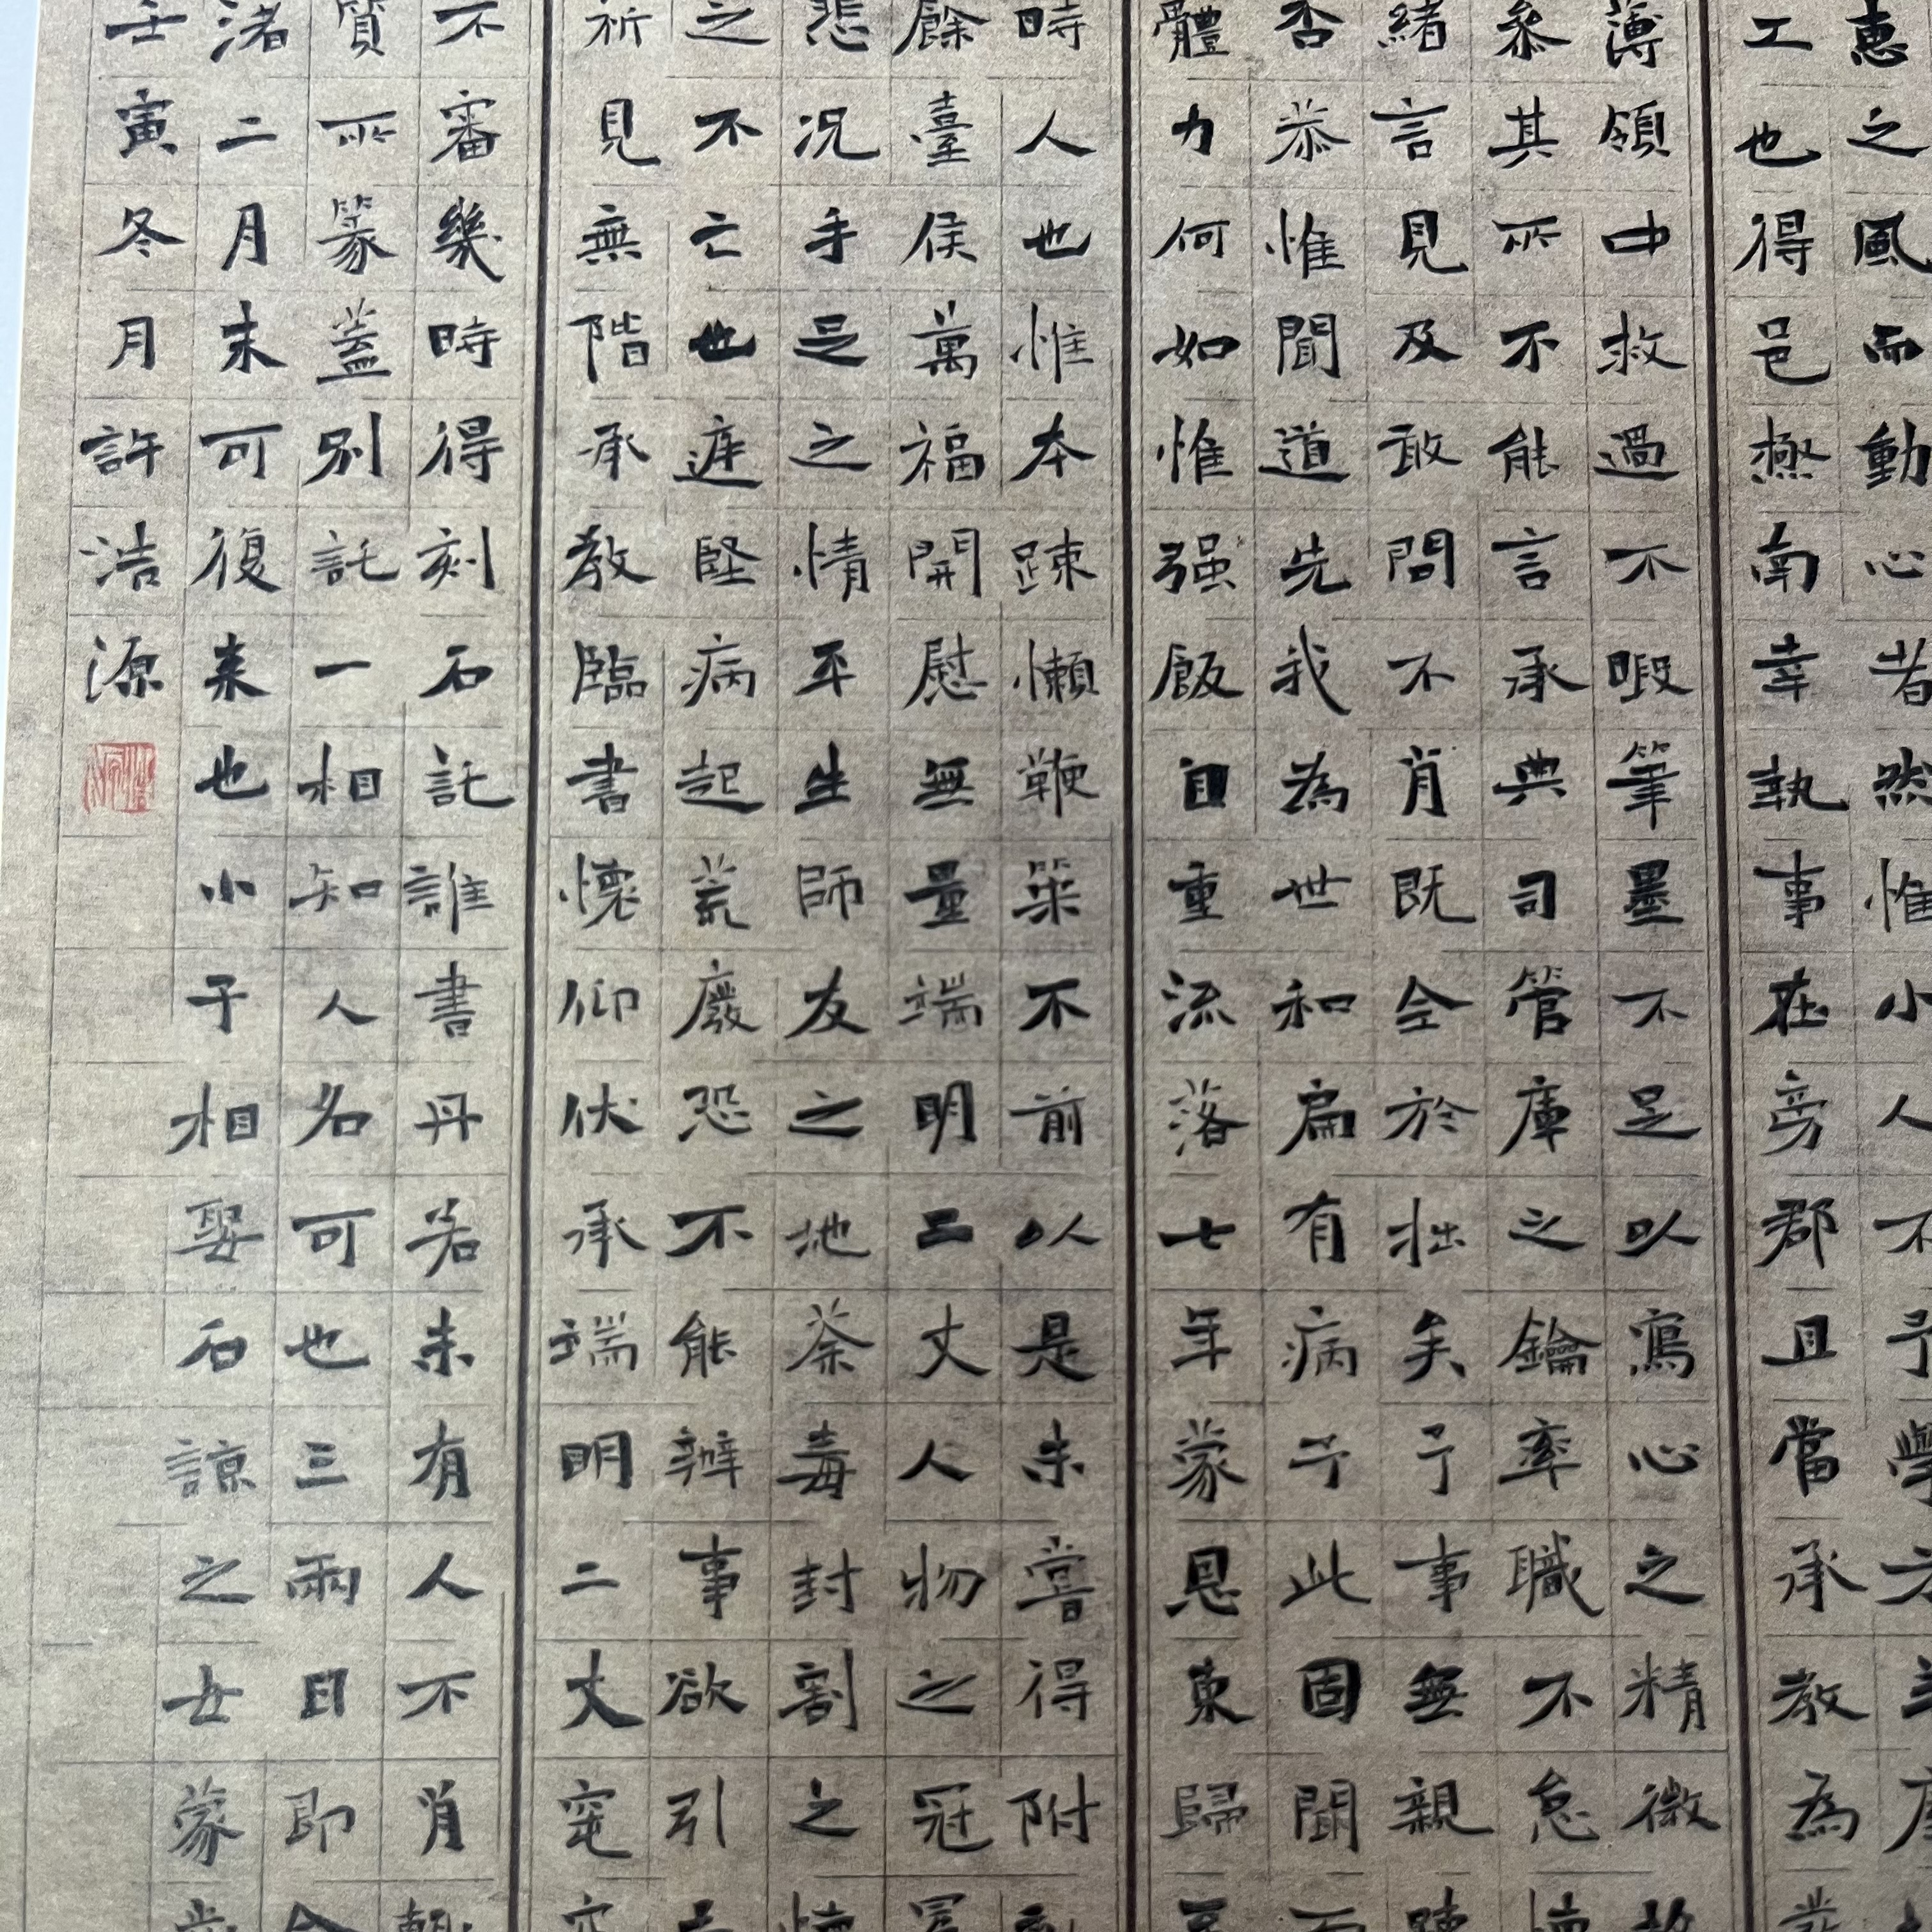 惠之風而動心者然惟小人不予學方
工也得邑極南幸執事在旁郡且當承教為
薄領中救過不暇筆墨不足以寫心之精微
叅其所不能言承典司管庫之鑰率職不怠
緒言見及敢問不肖既仝於拙矣予事無親
否恭惟聞道先我為世和扁有病予此固聞
體力何如惟强飯自重流落七年蒙恩東歸
時人也惟本踈懶鞭策不前以是未嘗得附
餘臺侯萬福開慰無量端明二丈人物之冠
悲况手足之情平生師友之地荼毒封割之
之不亡也遊堅病起荒廢恐不能辦事欲引
祈見無階承教臨書懷仰伏承端明二丈窀
不審幾時得刻石託誰書丹若未有人不肖
質所篆蓋別託一相知人名可也三兩日即
渚二月末可復来也小子相娶石諒之女蒙
壬寅冬月許浩源